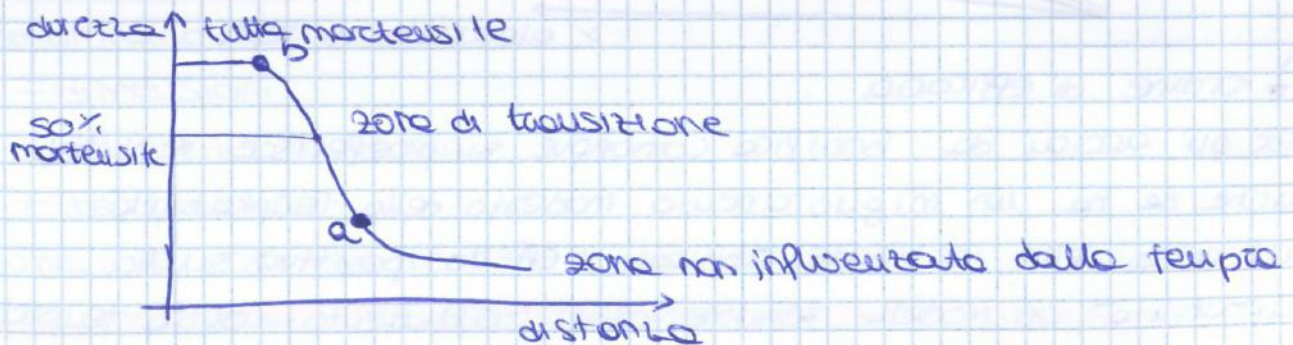 durezza tutta martensite
b
50%
martensite
zona di transizione
a
zona non influenzata dalla tempra
distanza